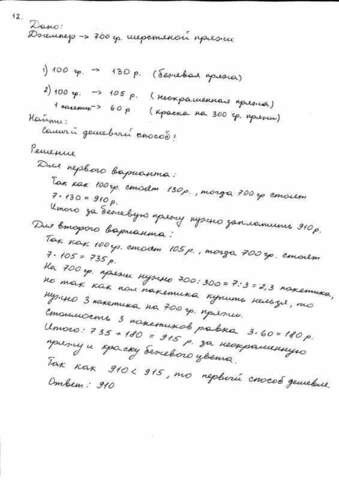 12.
Дано:
Джемпер → 700 гр. шерстяной пряжи
1) 100 гр. → 130 р. (бежевая пряжа)
2) 100 гр. → 105 р. (неокрашенная пряжа)
1 пакетик → 60 р (краска на 300 гр. пряжи)
Найти:
Самый дешевый способ!
Решение
Для первого варианта:
Так как 100 гр. стоят 130 р., тогда 700 гр стоят
7 · 130 = 910 р.
Итого за бежевую пряжу нужно заплатить 910 р.
Для второго варианта:
Так как 100 гр. стоят 105 р., тогда 700 гр. стоят
7 · 105 = 735 р.
На 700 гр. пряжи нужно 700 : 300 = 7 : 3 = 2,3 пакетика,
но так как пол пакетика купить нельзя, то
нужно 3 пакетика на 700 гр. пряжи.
Стоимость 3 пакетиков равна 3 · 60 = 180 р.
Итого: 735 + 180 = 915 р. за неокрашенную
пряжу и краску бежевого цвета.
Так как 910 < 915, то первый способ дешевле
Ответ: 910